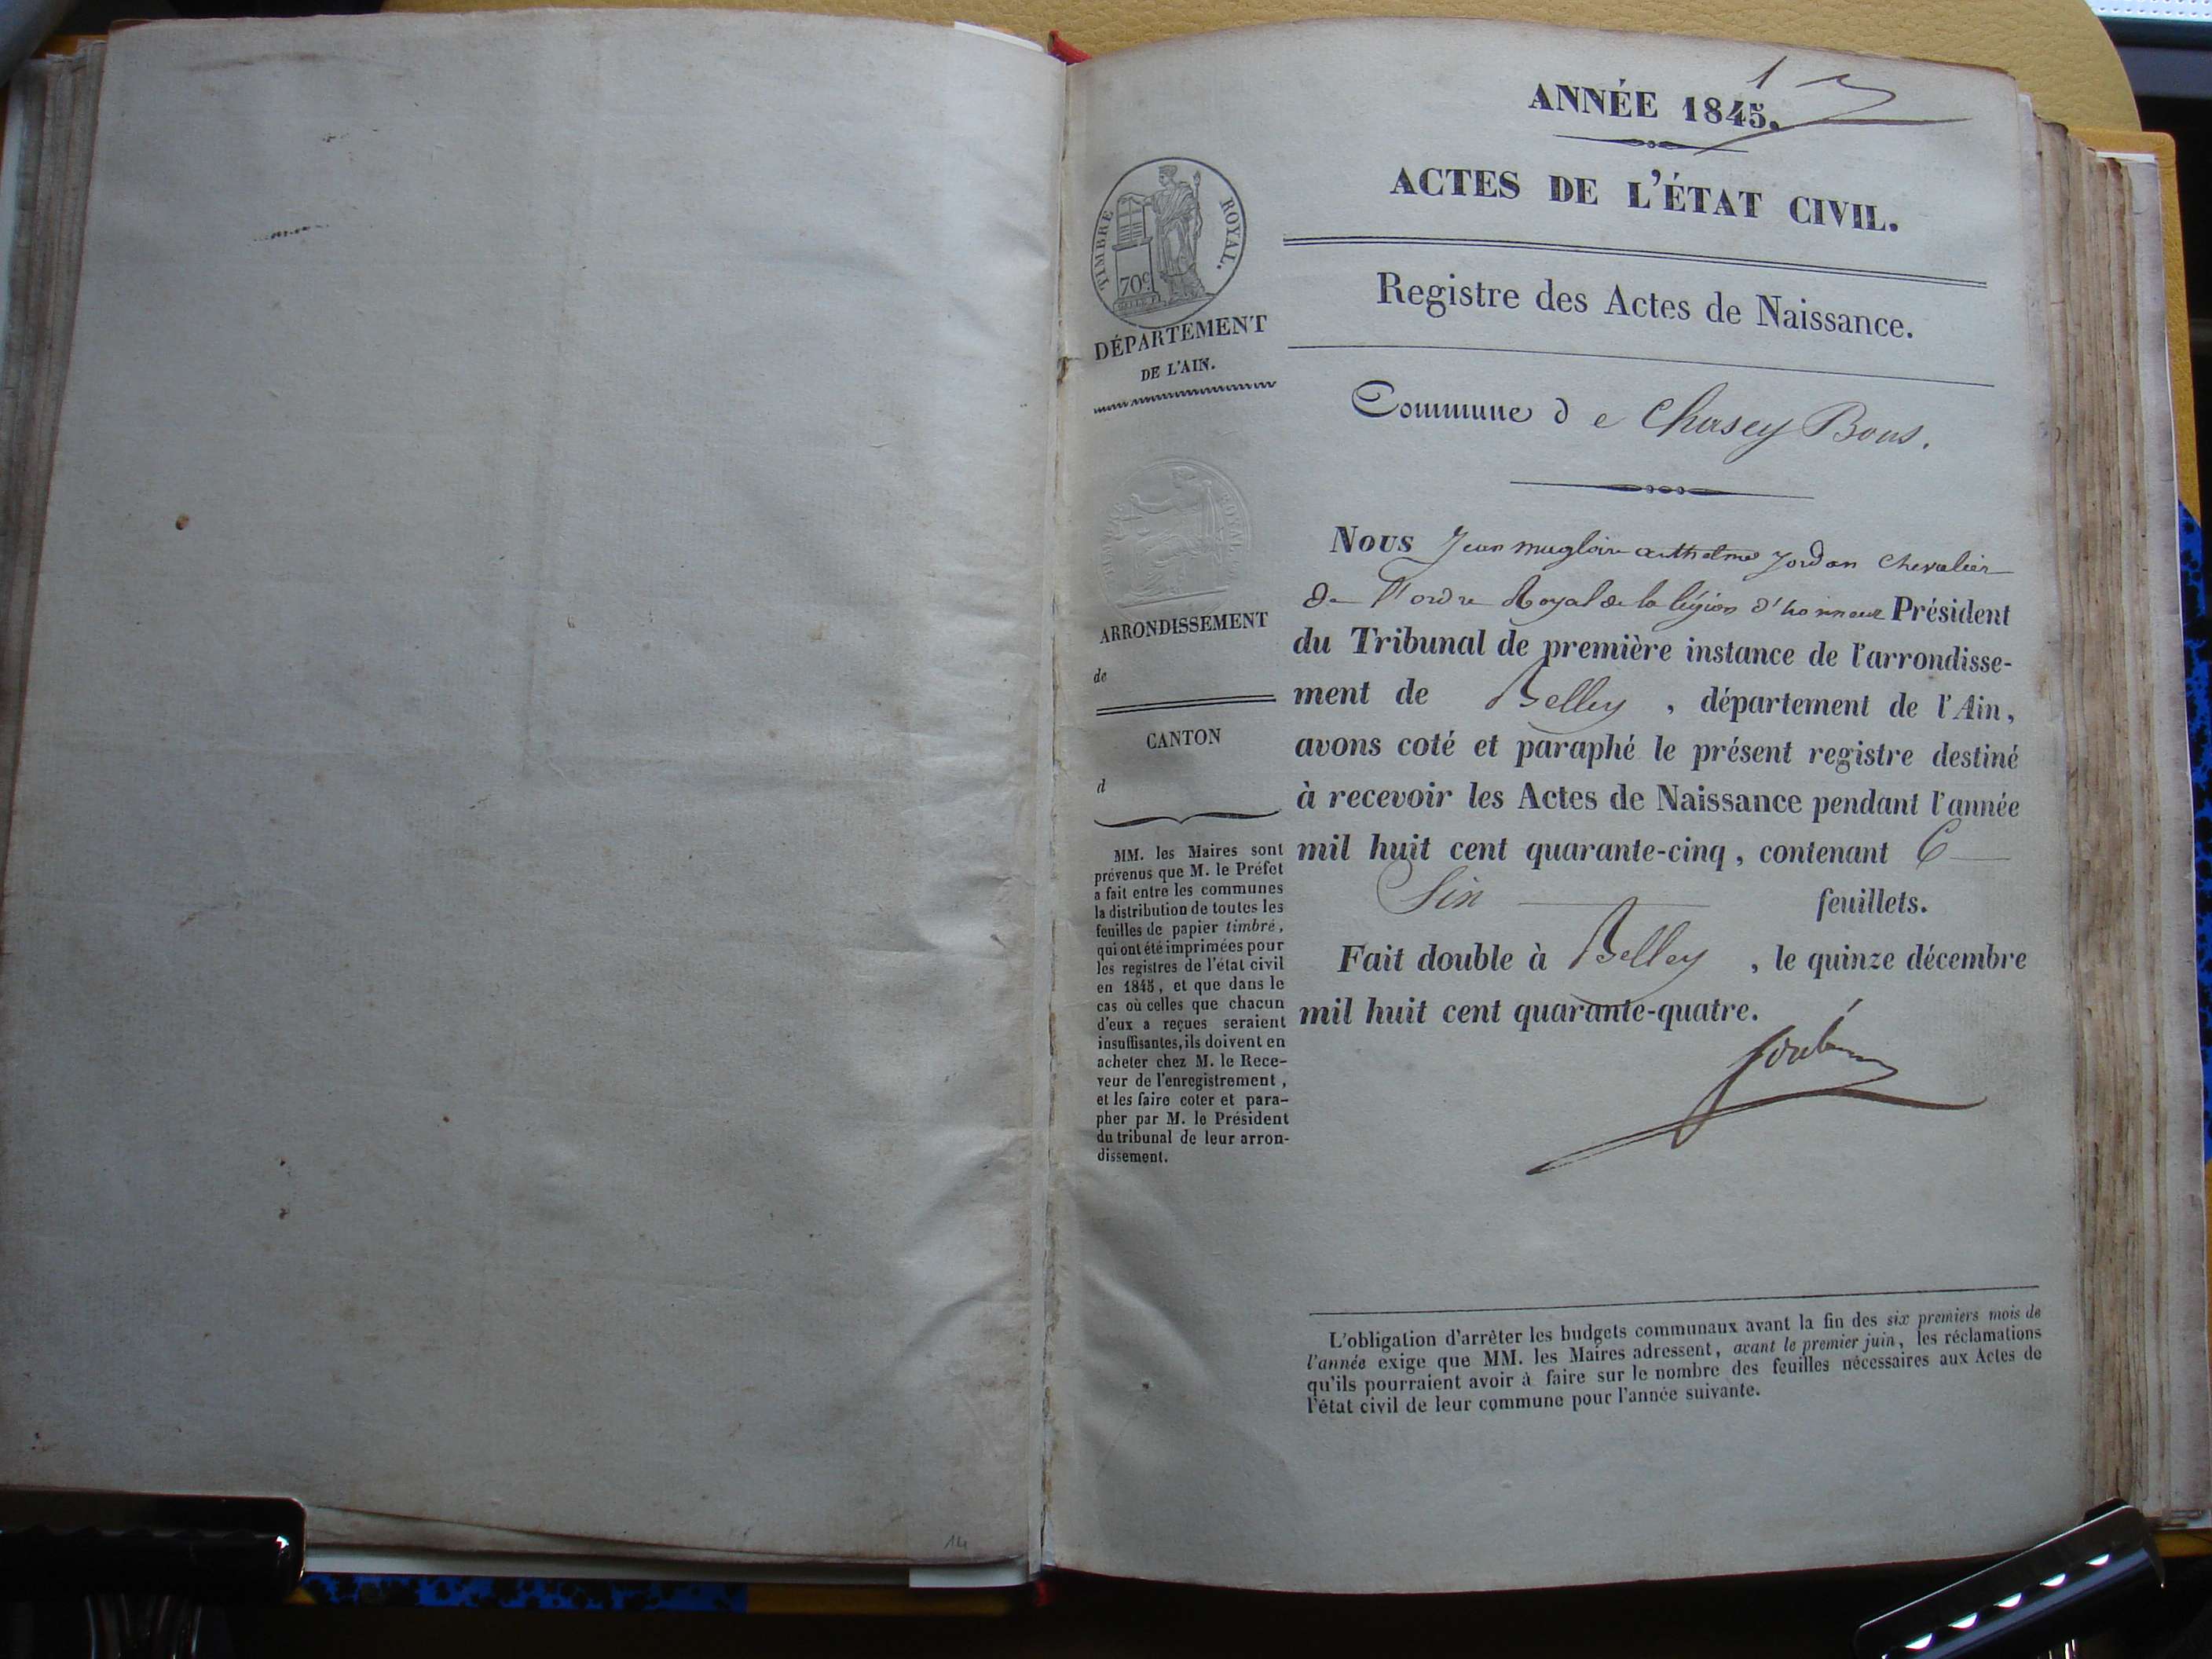 1
ANNÉE 1845.
ACTES DE L'ÉTAT CIVIL.
Registre des Actes de Naissance.
Commune d e Chasey Bons.
TIMBRE ROYAL.
70c
DÉPARTEMENT
DE L'AIN.
ARRONDISSEMENT
de
CANTON
d
MM. les Maires sont
prévenus que M. le Préfet
a fait entre les communes
la distribution de toutes les
feuilles de papier timbré,
qui ont été imprimées pour
les registres de l'état civil
en 1845, et que dans le
cas où celles que chacun
d'eux a reçues seraient
insuffisantes, ils doivent en
acheter chez M. le Rece-
veur de l'enregistrement,
et les faire coter et para-
pher par M. le Président
du tribunal de leur arron-
dissement.
Nous Jean magloire anthelme Jordan Chevalier
De l'ordre Royal de la légion d'honneur Président
du Tribunal de première instance de l'arrondisse-
ment de Belley , département de l'Ain,
avons coté et paraphé le présent registre destiné
à recevoir les Actes de Naissance pendant l'année
mil huit cent quarante-cinq, contenant 6
Six feuillets.
Fait double à Belley , le quinze décembre
mil huit cent quarante-quatre.
L'obligation d'arrêter les budgets communaux avant la fin des six premiers mois de
l'année exige que MM. les Maires adressent, avant le premier juin, les réclamations
qu'ils pourraient avoir à faire sur le nombre des feuilles nécessaires aux Actes de
l'état civil de leur commune pour l'année suivante.
14